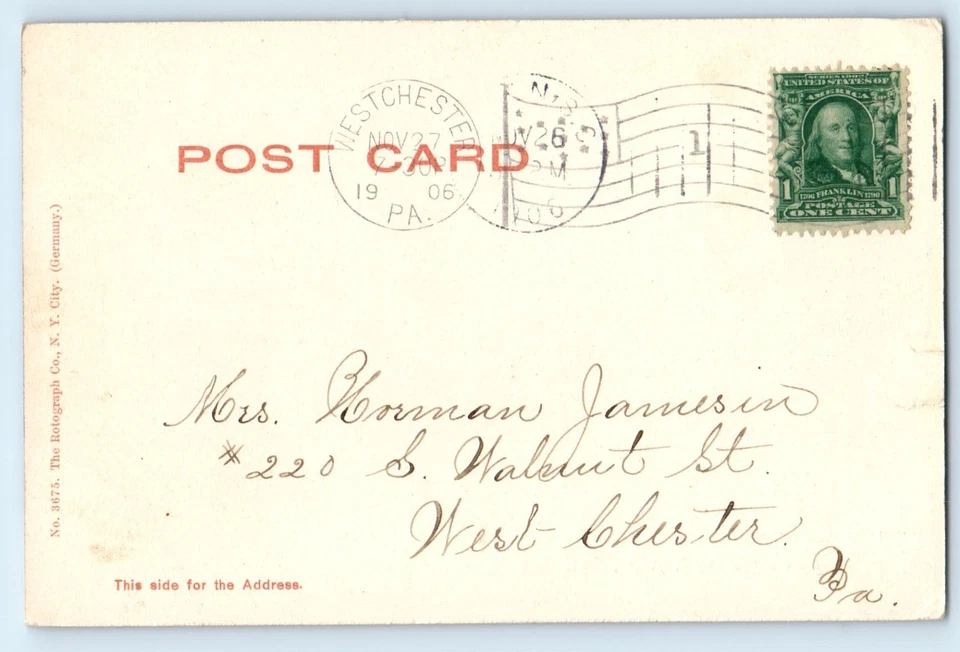 POST CARD
WESTCHESTER
NOV 27
1906
PA.
26
M
06
1
SERIES 1902
UNITED STATES OF
AMERICA
1 1
1706 FRANKLIN 1790
POSTAGE
ONE CENT
No. 3675. The Rotograph Co., N. Y. City. (Germany.)
Mrs. Norman Jamesin
# 220 S. Walnut St.
West Chester.
Pa.
This side for the Address.